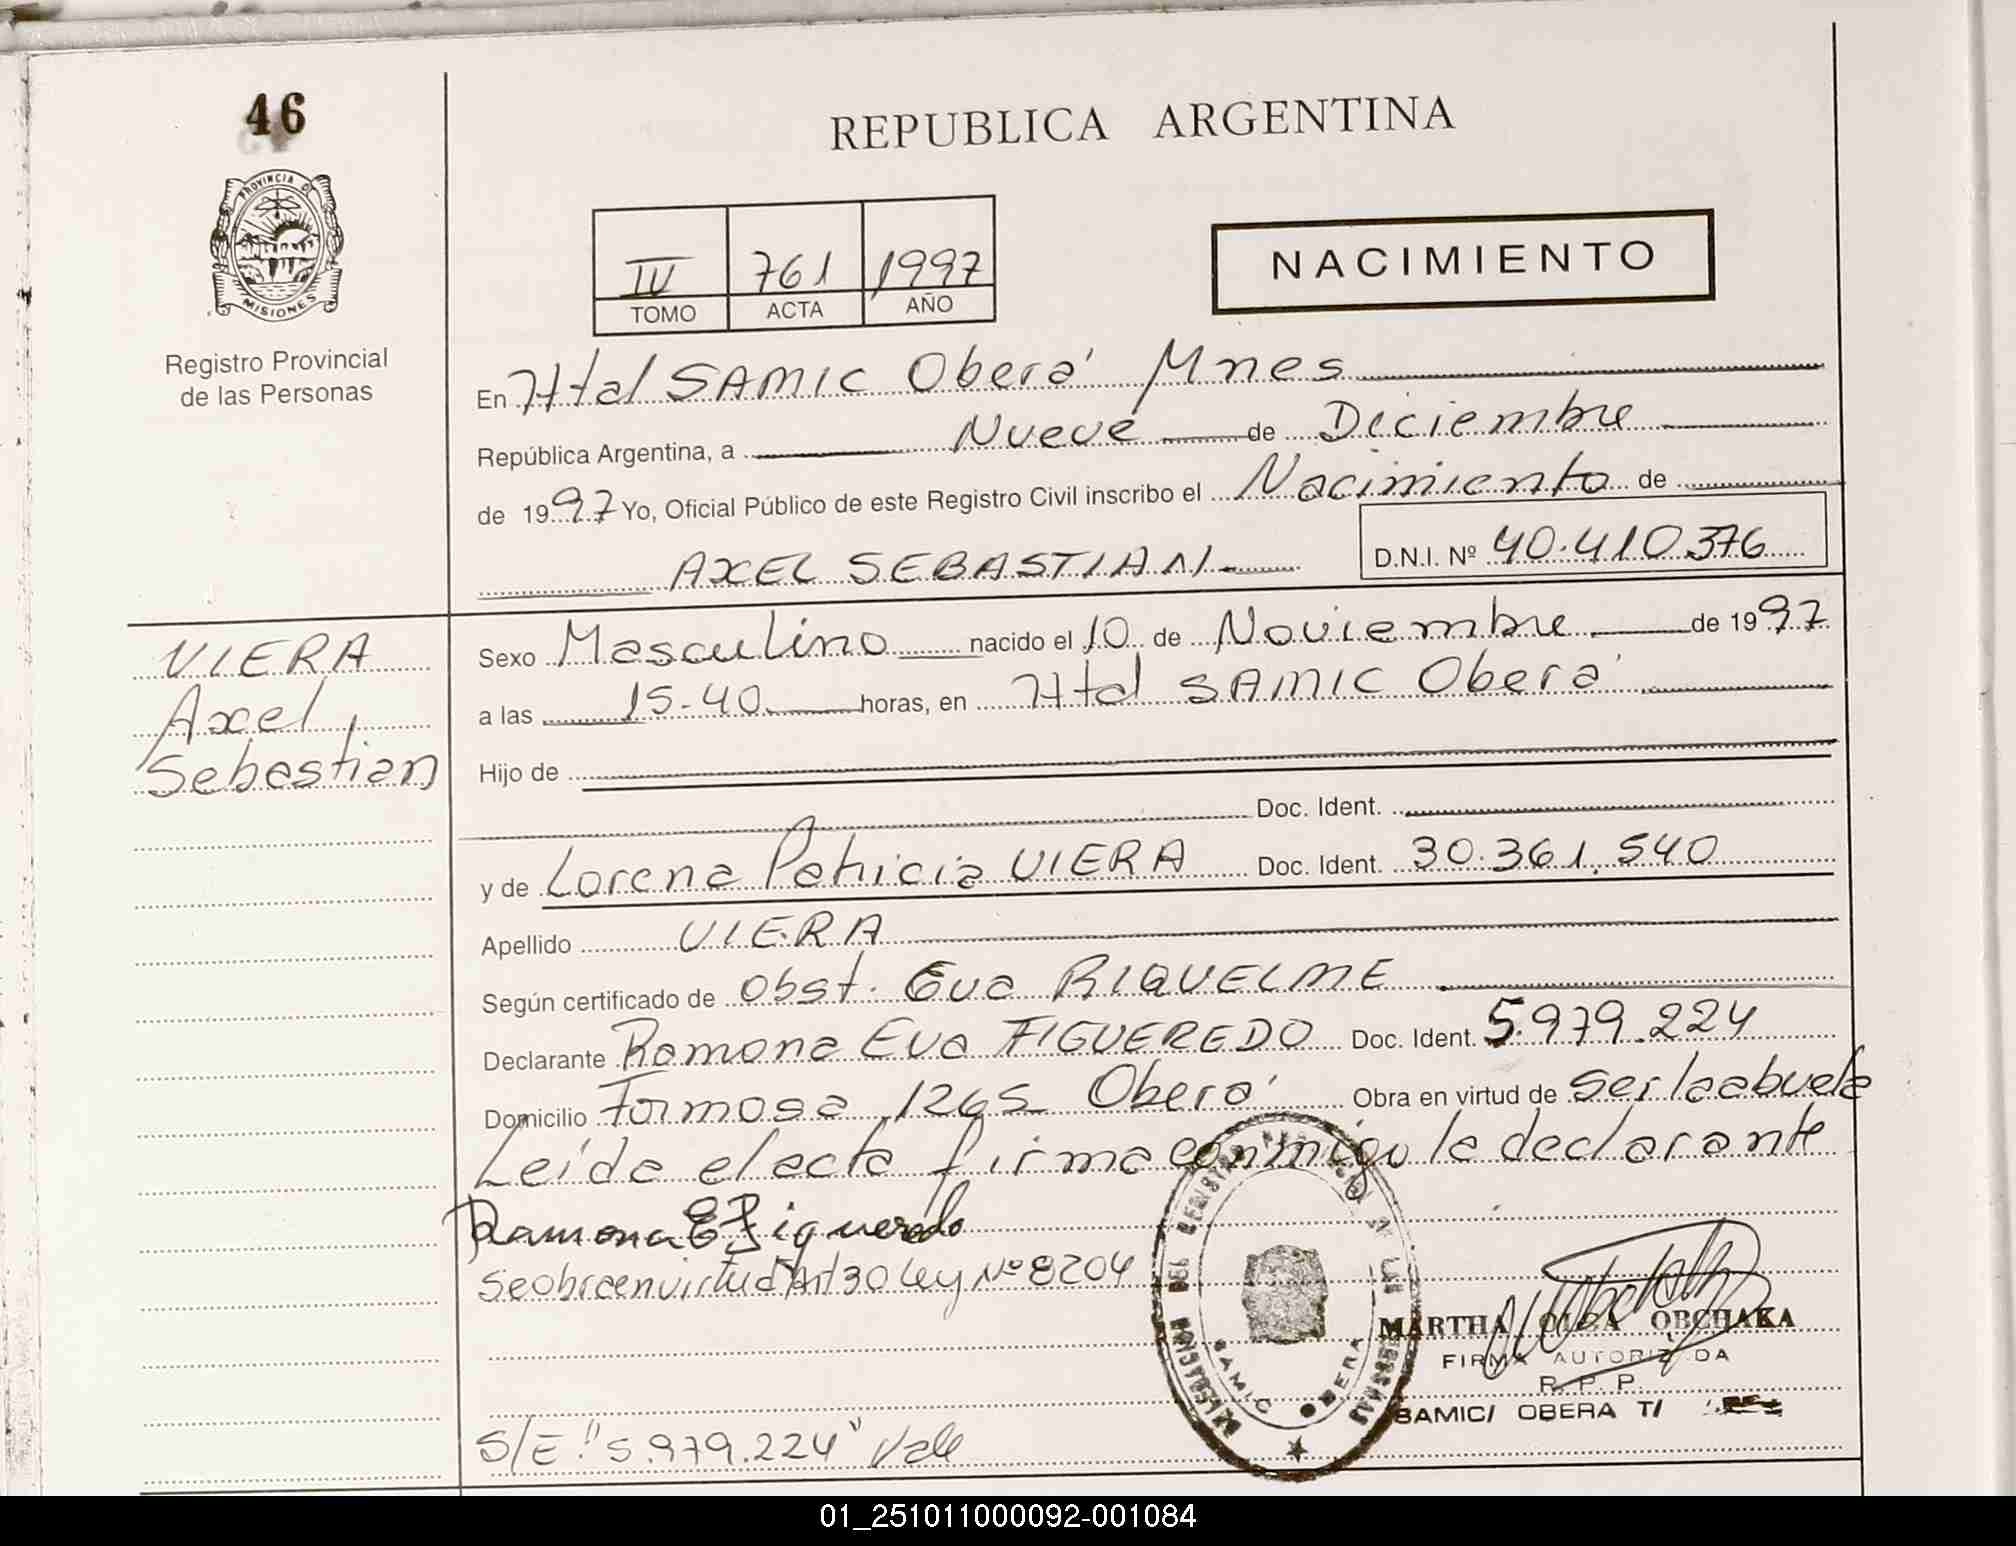 46
REPUBLICA ARGENTINA
PROVINCIA D
MISIONES
Registro Provincial
de las Personas
IV 761 1997
TOMO ACTA AÑO
NACIMIENTO
En Htal SAMIC Oberá Mnes
República Argentina, a Nueve de Diciembre
de 1997 Yo, Oficial Público de este Registro Civil inscribo el Nacimiento de
AXEL SEBASTIAN D.N.I. Nº 40.410.376
VIERA
Axel
Sebastian
Sexo Masculino nacido el 10 de Noviembre de 1997
a las 15-40 horas, en Htal SAMIC Oberá
Hijo de
Doc. Ident.
y de Lorena Patricia VIERA Doc. Ident. 30.361.540
Apellido VIERA
Según certificado de Obst. Eva RIQUELME
Declarante Ramona Eva FIGUEREDO Doc. Ident. 5.979.224
Domicilio Formosa 1265 Oberá Obra en virtud de ser la abuela
Leída el acta firma conmigo la declarante
Ramona E Figueredo
Se obra en virtud Art 30 Ley Nº 8204
SAMIC OBERA
MARTHA OLGA OBCHAKA
FIRMA AUTORIZADA
R. P. P.
SAMIC/ OBERA T/
S/E "5.979.224" Vale
01_251011000092-001084